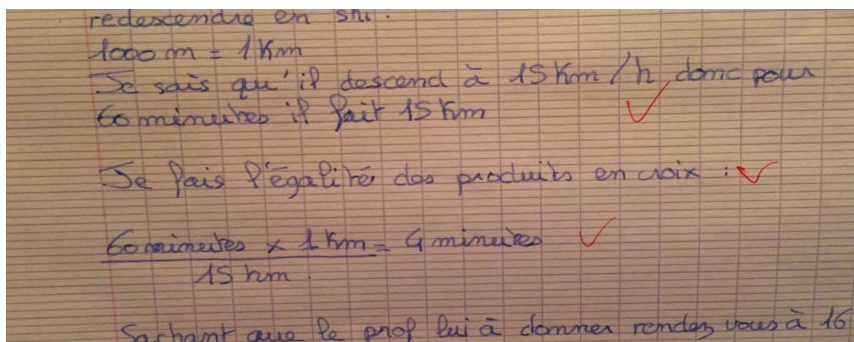 redescendre en ski.
1000 m = 1 Km
Je sais qu'il descend à 15 Km/h donc pour
60 minutes il fait 15 Km
Je fais l'égalité des produits en croix :
60 minutes x 1 Km = 4 minutes
15 km.
Sachant que le prof lui à donner rendez vous à 16